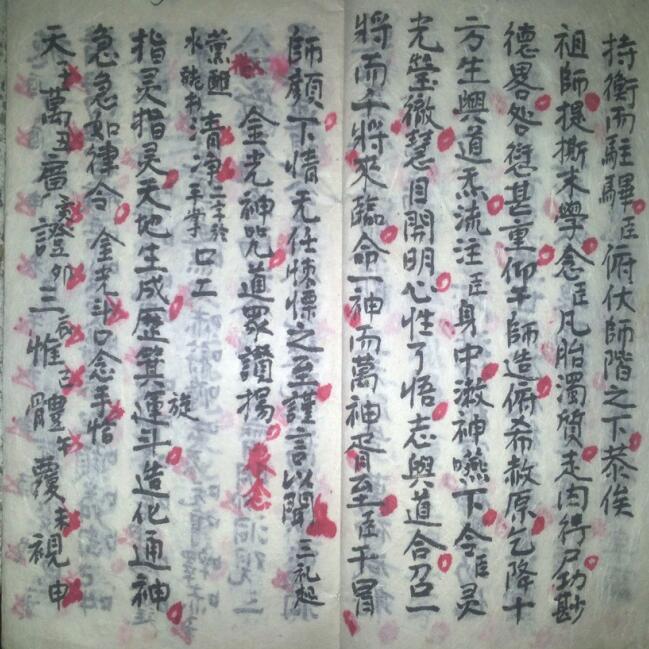 持衡而駐驛臣俯伏師階之下恭俟
祖師提撕末學念臣凡胎濁質走肉行尸功尠
德畧咎愆甚重仰干師造俯希赦原乞降十
方生興道炁流注臣身中潄神嚥下令臣灵
光瑩徹慧目開明心性了悟志與道合召一
將而千將來臨命一神而萬神齊至臣干冒
師顔下情无任悚慄之至謹言以聞 三礼起
金光神咒道眾讚揚 眾念
薰醮
水 清净 二字於 平字 口工
指灵指灵天地生成歷箕運斗旋造化通神
急急如律令 金光斗口念手恰
天子萬丑廣寅證卯三辰惟己體午覆未視申